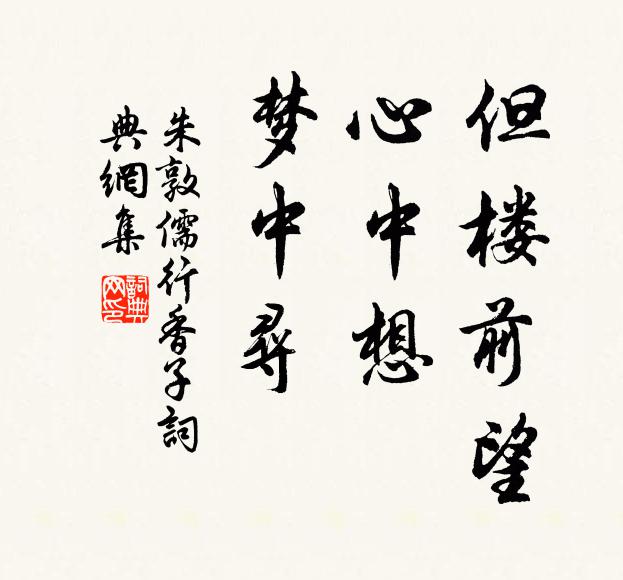 但楼前望
心中想
梦中尋
朱敦儒行香子詞
典網集
詞典网印